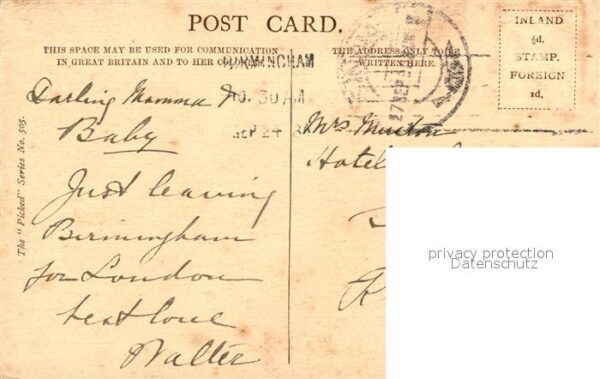 POST CARD.
THIS SPACE MAY BE USED FOR COMMUNICATION
IN GREAT BRITAIN AND TO HER
THE ADDRESS ONLY TO BE
WRITTEN HERE.
INLAND
½d.
STAMP.
FOREIGN
1d.
BIRMINGHAM
10.30 AM
SEP 24
27 SEP
The "Picked" Series No. 505.
Darling Mamma &
Baby
Just leaving
Birmingham
for London
best love
Walter
Mrs
Hotel
privacy protection
Datenschutz